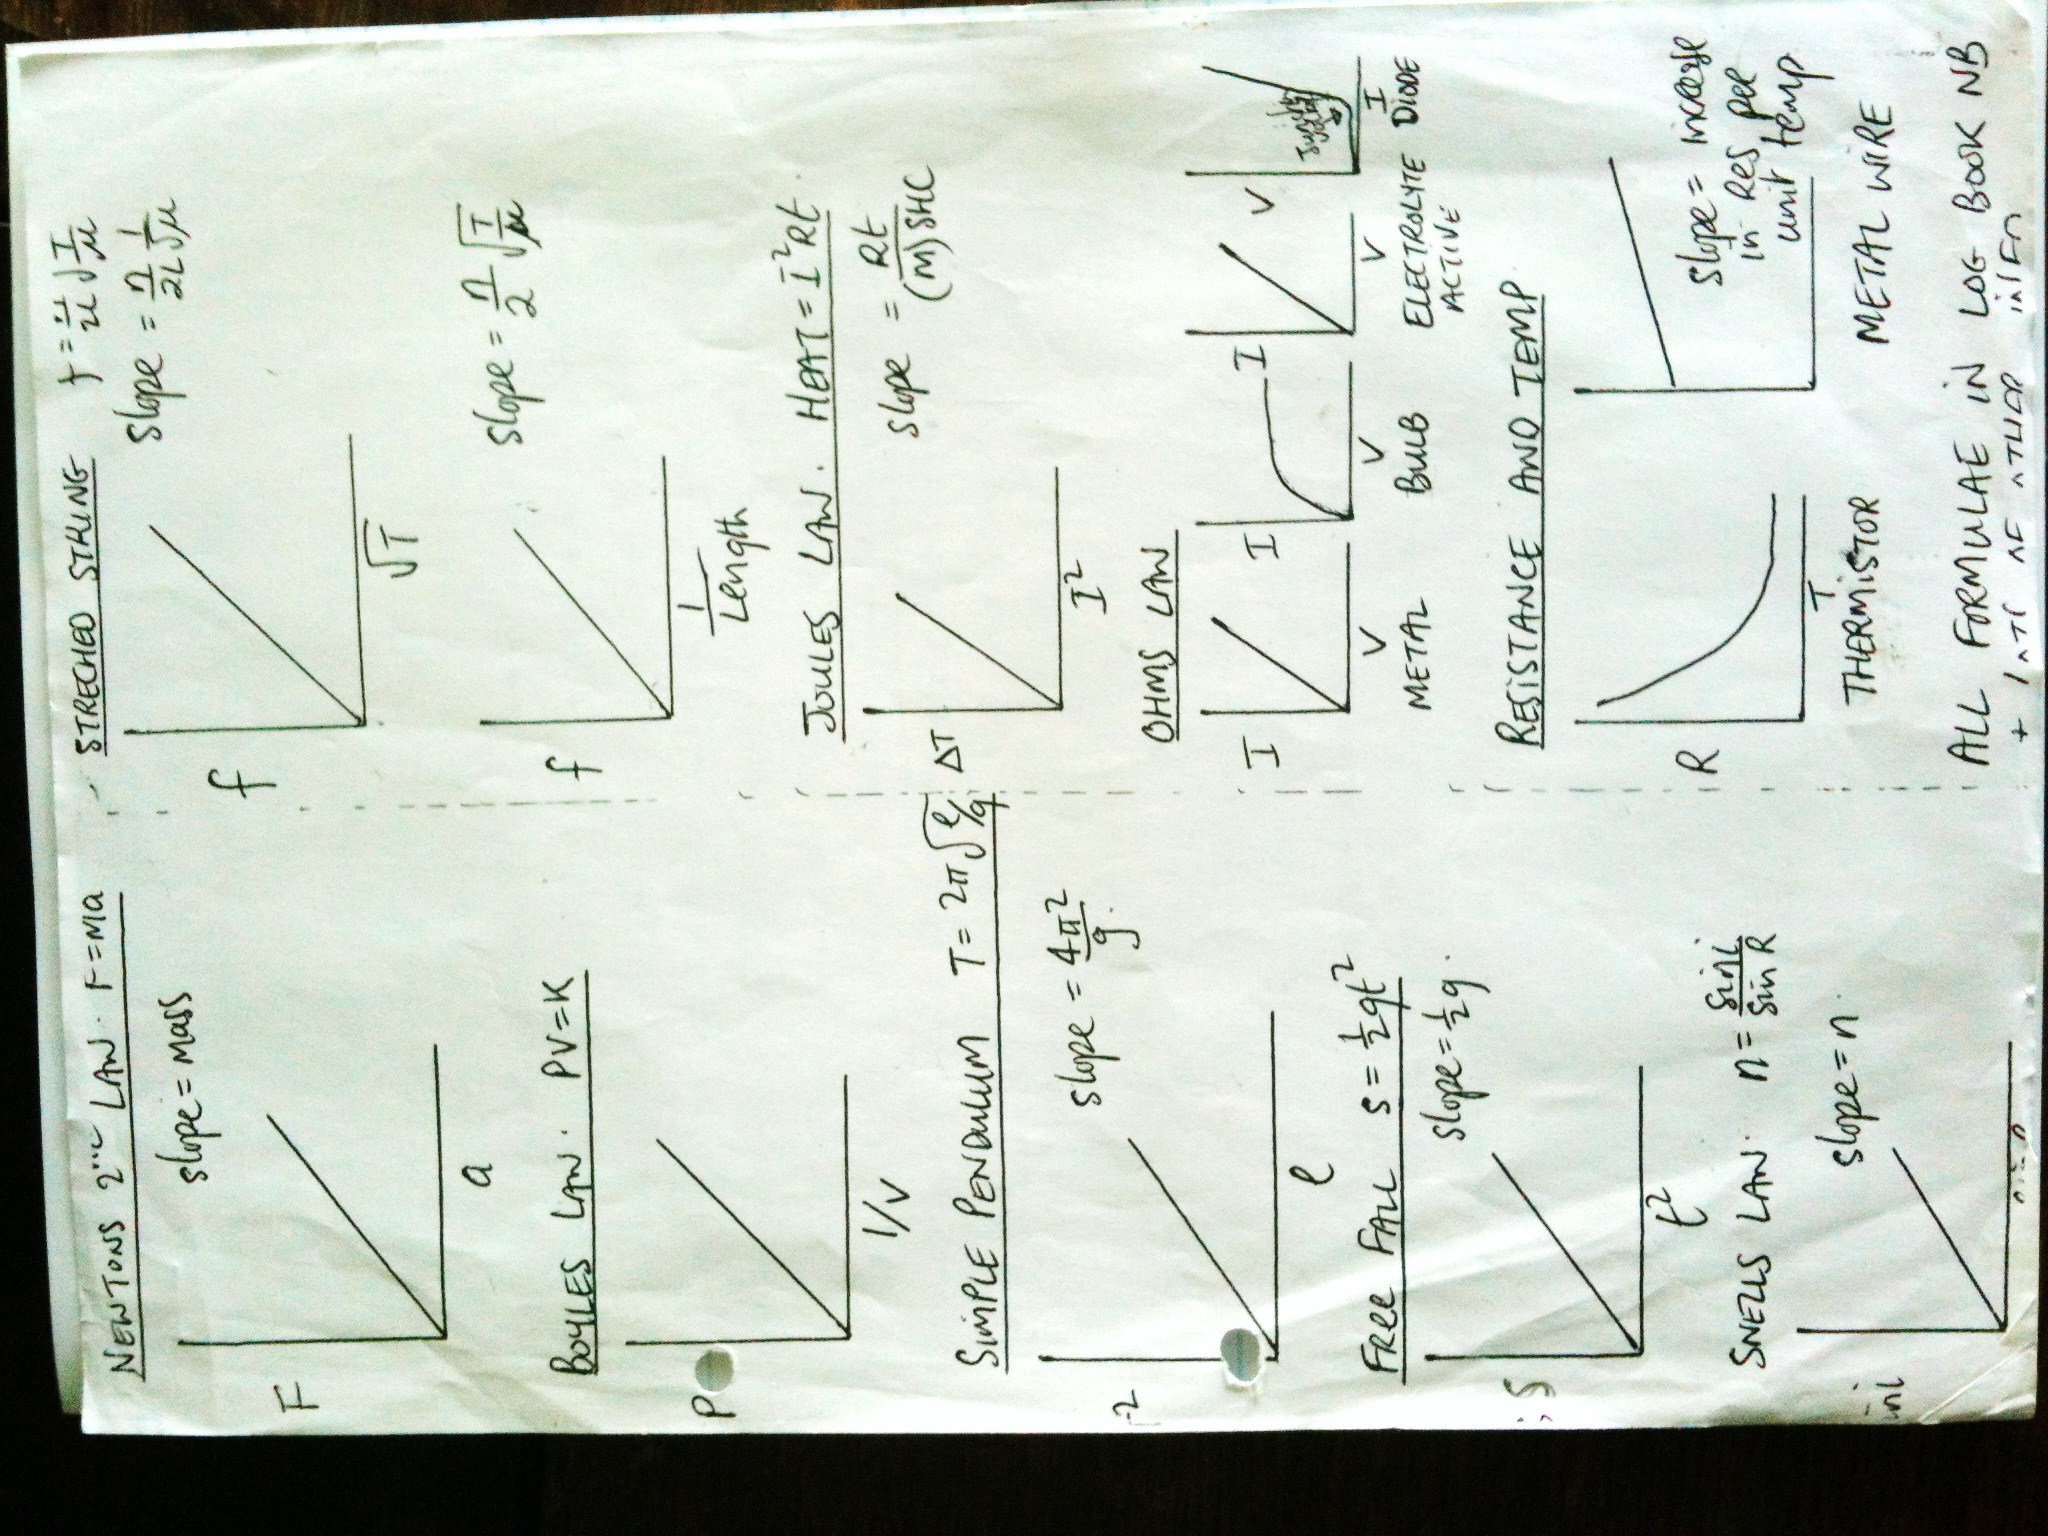 NEWTONS 2nd LAW. F=Ma
slope = mass
F
a
BOYLES LAW. PV=K
P
1/V
SIMPLE PENDULUM T=2π√l/g
slope = 4π²/g
l
FREE FALL s=½gt²
slope=½g.
S
t²
SNELLS LAW. n= sini/sin R
slope = n.
STRECHED STRING
slope = n/2L 1/√μ
f
√T
slope = n/2 √T/μ
f
1/Length
JOULES LAW. HEAT = I²Rt
slope = Rt/(M)SHC
ΔT
I²
OHMS LAW
I
V
METAL
I
V
BULB
I
V
ELECTROLYTE
ACTIVE
V
I
DIODE
RESISTANCE AND TEMP.
R
T
THERMISTOR
slope = increase
in Res per
unit temp
METAL WIRE
ALL FORMULAE IN LOG BOOK NB